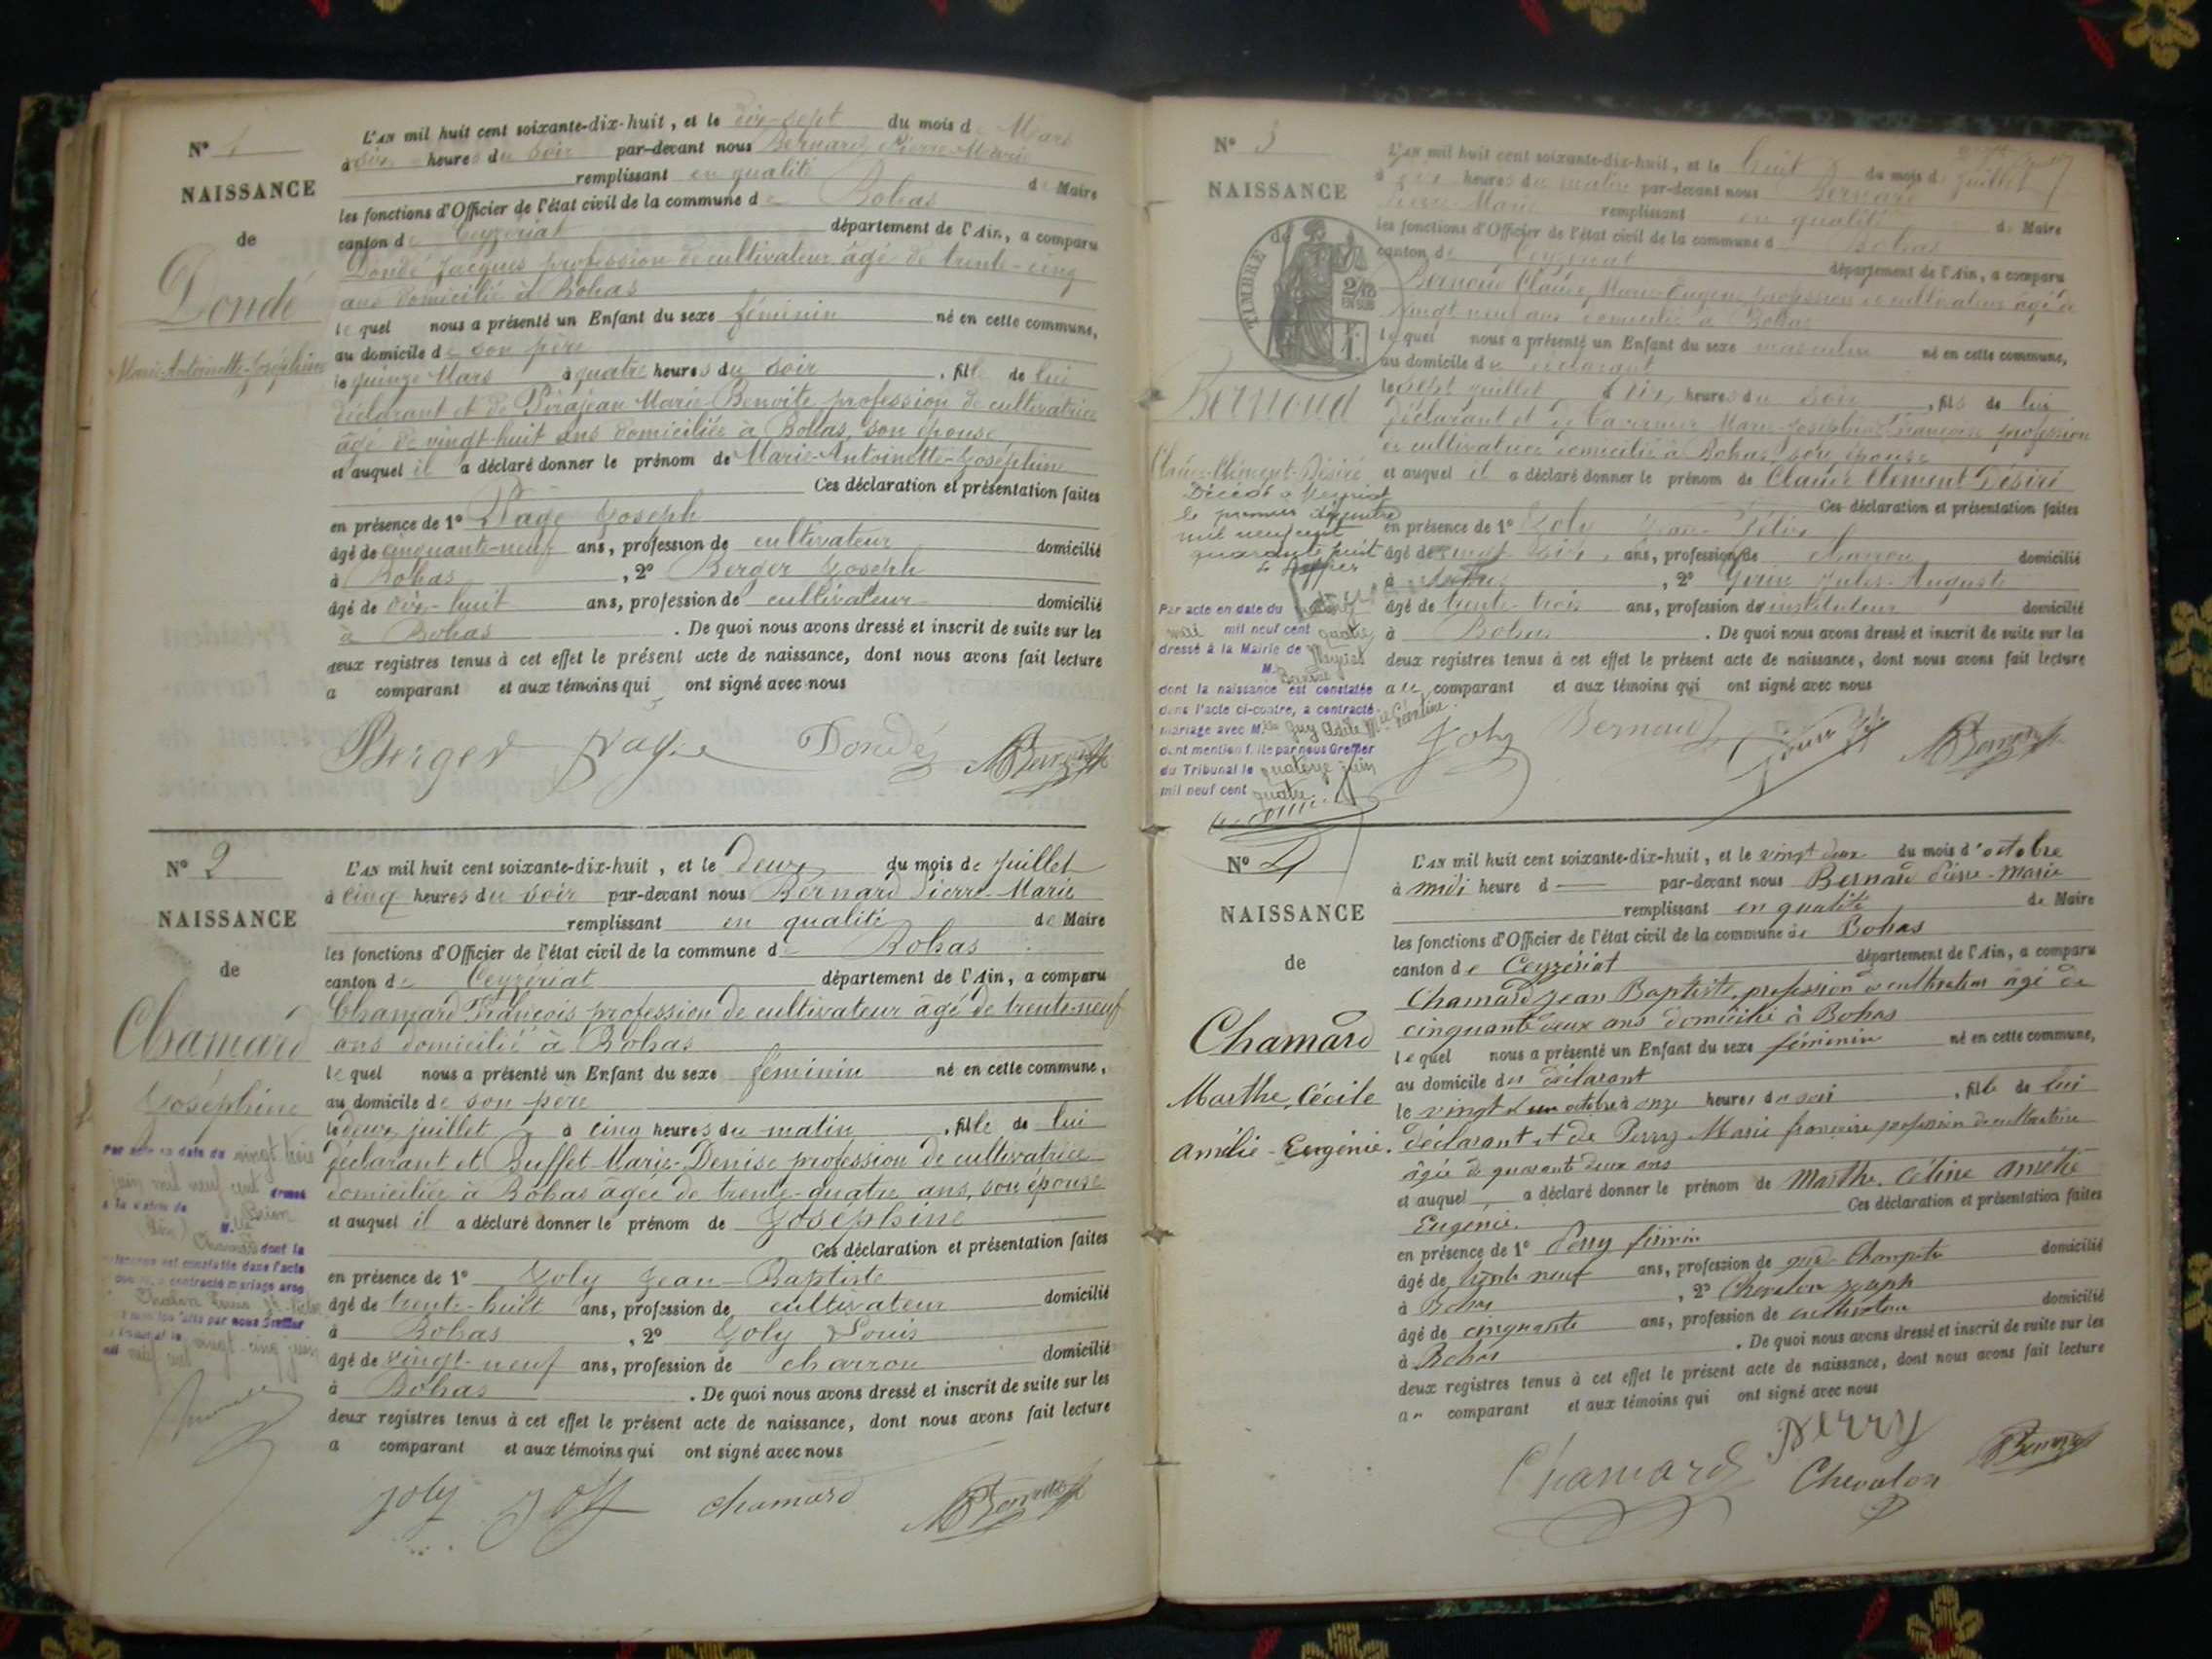 N° 1
NAISSANCE
de
Dondé
Marie-Antoinette-Joséphine
L'AN mil huit cent soixante-dix-huit, et le dix-sept du mois de Mars
à six heures du soir par-devant nous Bernard Pierre-Marie
remplissant en qualité de Maire
les fonctions d'Officier de l'état civil de la commune de Bohas
canton de Ceyzériat département de l'Ain, a comparu
Dondé Jacques profession de cultivateur âgé de trente-cinq
ans domicilié à Bohas
lequel nous a présenté un Enfant du sexe féminin né en cette commune,
au domicile de son père
le quinze Mars à quatre heures du soir, fille de lui
déclarant et de Marie-Benoite profession de cultivatrice
âgé de vingt-huit ans domiciliée à Bohas, son épouse
et auquel il a déclaré donner le prénom de Marie-Antoinette-Joséphine
Ces déclaration et présentation faites
en présence de 1° Page Joseph
âgé de cinquante-neuf ans, profession de cultivateur domicilié
à Bohas, 2° Berger Joseph
âgé de dix-huit ans, profession de cultivateur domicilié
à Bohas. De quoi nous avons dressé et inscrit de suite sur les
deux registres tenus à cet effet le présent acte de naissance, dont nous avons fait lecture
a comparant et aux témoins qui ont signé avec nous
Berger Page Dondé
N° 2
NAISSANCE
de
Chamard
Joséphine
Par acte en date du vingt trois
juin mil neuf cent dressé
à la Mairie de
Chamard dont la
naissance est constatée dans l'acte
contracté mariage avec
Chalon Louis
par nous Greffier
vingt-cinq juin
mil neuf cent
L'AN mil huit cent soixante-dix-huit, et le deux du mois de Juillet
à cinq heures du soir par-devant nous Bernard Pierre-Marie
remplissant en qualité de Maire
les fonctions d'Officier de l'état civil de la commune de Bohas
canton de Ceyzériat département de l'Ain, a comparu
Chamard François profession de cultivateur âgé de trente-neuf
ans domicilié à Bohas
lequel nous a présenté un Enfant du sexe féminin né en cette commune,
au domicile de son père
le deux juillet à cinq heures du matin, fille de lui
déclarant et Buffet Marie-Denise profession de cultivatrice
domiciliée à Bohas âgée de trente-quatre ans, son épouse
et auquel il a déclaré donner le prénom de Joséphine
Ces déclaration et présentation faites
en présence de 1° Joly Jean-Baptiste
âgé de trente-huit ans, profession de cultivateur domicilié
à Bohas, 2° Joly Louis
âgé de vingt-neuf ans, profession de charron domicilié
à Bohas. De quoi nous avons dressé et inscrit de suite sur les
deux registres tenus à cet effet le présent acte de naissance, dont nous avons fait lecture
a comparant et aux témoins qui ont signé avec nous
Joly Joly Chamard
N° 3
NAISSANCE
de
TIMBRE
Bernoud
Claude-Clément-Désiré
Décédé à Meyriat
le premier
mil neuf cent
quarante huit
Par acte en date du
mai mil neuf cent quatre
dressé à la Mairie de Meyriat
M.
dont la naissance est constatée
dans l'acte ci-contre, a contracté
mariage avec Mlle Guy Adèle Mie Léontine
dont mention faite par nous Greffier
du Tribunal le quatorze juin
mil neuf cent quatre
L'AN mil huit cent soixante-dix-huit, et le huit du mois de Juillet
à heures du matin par-devant nous Bernard
Pierre-Marie remplissant en qualité de Maire
les fonctions d'Officier de l'état civil de la commune de Bohas
canton de Ceyzériat département de l'Ain, a comparu
Bernoud Claude Marie Eugène profession de cultivateur âgé de
vingt neuf ans domicilié à Bohas
lequel nous a présenté un Enfant du sexe masculin né en cette commune,
au domicile du déclarant
le sept juillet à dix heures du soir, fils de lui
déclarant et de Marie-Joséphine Françoise profession
de cultivatrice domiciliée à Bohas, son épouse
et auquel il a déclaré donner le prénom de Claude Clément Désiré
Ces déclaration et présentation faites
en présence de 1° Joly Jean-Félix
âgé de vingt ans, profession de charron domicilié
à Bohas, 2° Jules-Auguste
âgé de trente-trois ans, profession de instituteur domicilié
à Bohas. De quoi nous avons dressé et inscrit de suite sur les
deux registres tenus à cet effet le présent acte de naissance, dont nous avons fait lecture
au comparant et aux témoins qui ont signé avec nous
Joly Bernoud
N° 4
NAISSANCE
de
Chamard
Marthe, Cécile
Amélie-Eugénie.
L'AN mil huit cent soixante-dix-huit, et le vingt deux du mois d'octobre
à midi heure d par-devant nous Bernard Pierre-Marie
remplissant en qualité de Maire
les fonctions d'Officier de l'état civil de la commune de Bohas
canton de Ceyzériat département de l'Ain, a comparu
Chamard Jean Baptiste, profession de cultivateur âgé de
cinquante deux ans domicilié à Bohas
lequel nous a présenté un Enfant du sexe féminin né en cette commune,
au domicile du déclarant
le vingt un octobre à onze heures du soir, fille de lui
déclarant et de Perry Marie françoise profession de cultivatrice
âgée de quarante deux ans
et auquel a déclaré donner le prénom de Marthe, Céline Amélie
Eugénie. Ces déclaration et présentation faites
en présence de 1° Perry firmin
âgé de trente neuf ans, profession de garde Champêtre domicilié
à Bohas, 2° Chevalon Joseph
âgé de cinquante ans, profession de cultivateur domicilié
à Bohas. De quoi nous avons dressé et inscrit de suite sur les
deux registres tenus à cet effet le présent acte de naissance, dont nous avons fait lecture
au comparant et aux témoins qui ont signé avec nous
Chamard Perry Chevalon